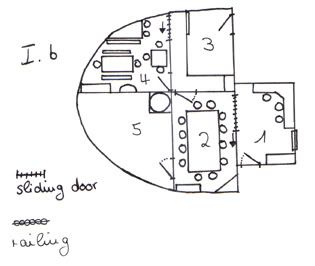 I. 6
3
4
5
2
1
sliding door
railing